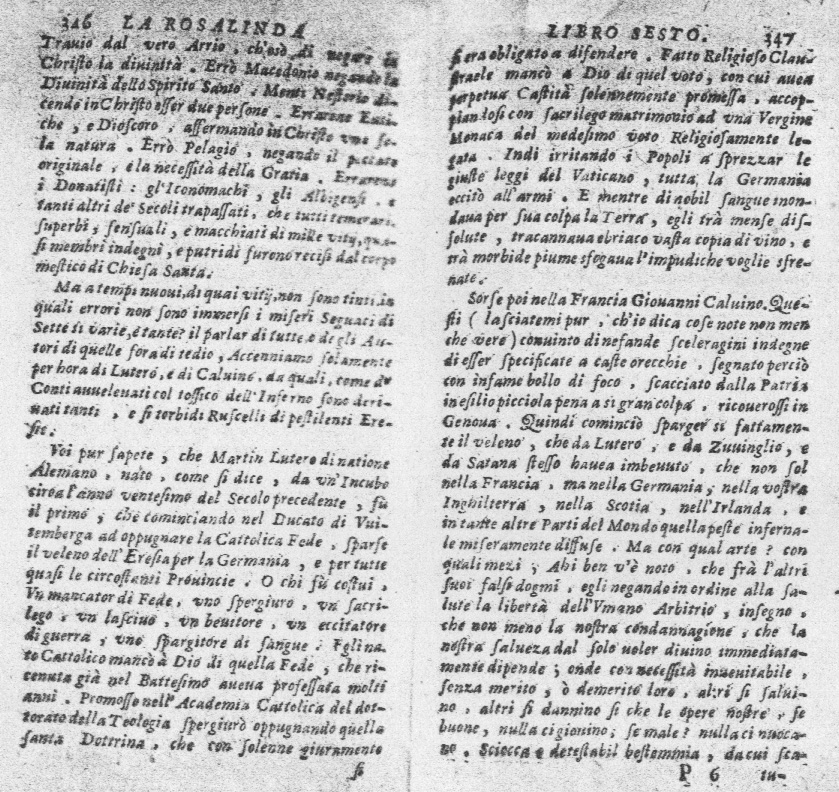 346 LA ROSALINDA
Traviò dal vero Arrio, ch'osò di negare in
Christo la divinità. Errò Macedonio negando la
Divinità dello Spirito Santo. Mentì Nestorio di-
cendo in Christo esser due persone. Errarono Euti-
che, e Dioscoro, affermando in Christo una so-
la natura. Errò Pelagio, negando il peccato
originale, e la necessità della Gratia. Errarono
i Donatisti: gl'Iconomachi, gli Albigensi, e
tanti altri de' Secoli trapassati, che tutti temerari,
superbi, sensuali, e macchiati di mille vitij, qua-
si membri indegni, e putridi furono recisi dal corpo
mestico di Chiesa Santa.
Ma a tempi nuovi, di quai vitij, non sono tinti, in
quali errori non sono immersi i miseri Seguaci di
Sette sì varie, e tante? il parlar di tutte, e de gli Au-
tori di quelle fora di tedio, Accenniamo solamente
per hora di Lutero, e di Calvino, da quali, come da
Fonti avvelenati col tossico dell'Inferno sono deri-
vati tanti, e sì torbidi Ruscelli di pestilenti Ere-
sie.
Voi pur sapete, che Martin Lutero di natione
Alemano, nato, come si dice, da vn'Incubo
circa l'anno ventesimo del Secolo precedente, fù
il primo, che cominciando nel Ducato di Vui-
temberga ad oppugnare la Cattolica Fede, sparse
il veleno dell'Eresia per la Germania, e per tutte
quasi le circostanti Provincie. O chi fù costui,
Vn mancator di Fede, vno spergiuro, vn sacri-
lego, vn lascivo, vn bevitore, vn eccitatore
di guerra, vno spargitore di sangue. Egli na-
to Cattolico mancò à Dio di quella Fede, che ri-
cevuta già nel Battesimo aveva professata molti
anni. Promosso nell'Academia Cattolica del dot-
torato della Teologia spergiurò oppugnando quella
santa Dottrina, che con solenne giuramento
si
LIBRO SESTO. 347
si era obligato a difendere. Fatto Religioso Clau-
strale mancò a Dio di quel voto, con cui avea
perpetua Castità solennemente promessa, accop-
piandosi con sacrilego matrimonio ad vna Vergine
Monaca del medesimo voto Religiosamente le-
gata. Indi irritando i Popoli a sprezzar le
giuste leggi del Vaticano, tutta la Germania
eccitò all'armi. E mentre di nobil sangue inon-
dava per sua colpa la Terra, egli trà mense dis-
solute, tracannava ebriaco vasta copia di vino, e
trà morbide piume sfogava l'impudiche voglie sfre-
nate.
Sorse poi nella Francia Giovanni Calvino. Que-
sti (lasciatemi pur, ch'io dica cose note non men
che vere) convinto di nefande sceleragini indegne
di esser specificate a caste orecchie, segnato perciò
con infame bollo di foco, scacciato dalla Patria
in esilio picciola pena a sì gran colpa, ricoverossi in
Genova. Quindi cominciò sparger sì fattamen-
te il veleno, che da Lutero, e da Zuuinglio, e
da Satana stesso haueua imbevuto, che non sol
nella Francia, ma nella Germania, nella vostra
Inghilterra, nella Scotia, nell'Irlanda, e
in tante altre Parti del Mondo quella peste inferna-
le miseramente diffuse. Ma con qual arte? con
quali mezi? Ahi ben v'è noto, che frà l'altri
suoi falsi dogmi, egli negando in ordine alla sa-
lute la libertà dell'Vmano Arbitrio, insegno,
che non meno la nostra condannagione, che la
nostra salveza dal solo voler divino immediata-
mente dipende; onde con necessità inevitabile,
senza merito, ò demerito loro, altri si salui-
no, altri si dannino sì che le opere nostre, se
buone, nulla ci giovino; se male? nulla ci nuoca-
no. Sciocca e detestabil bestemmia, da cui sca-
P 6 tu-